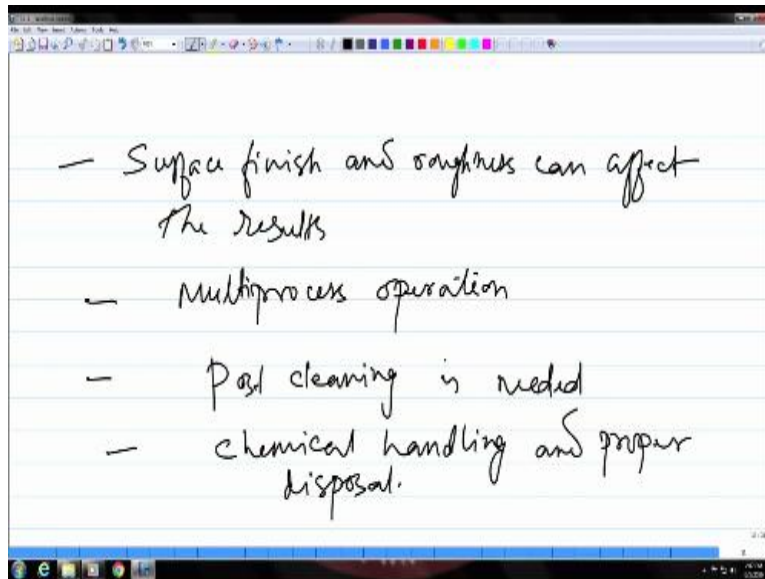 — Surface finish and roughness can affect
the results
— Multiprocess operation
— Post cleaning is needed
— chemical handling and proper
disposal.